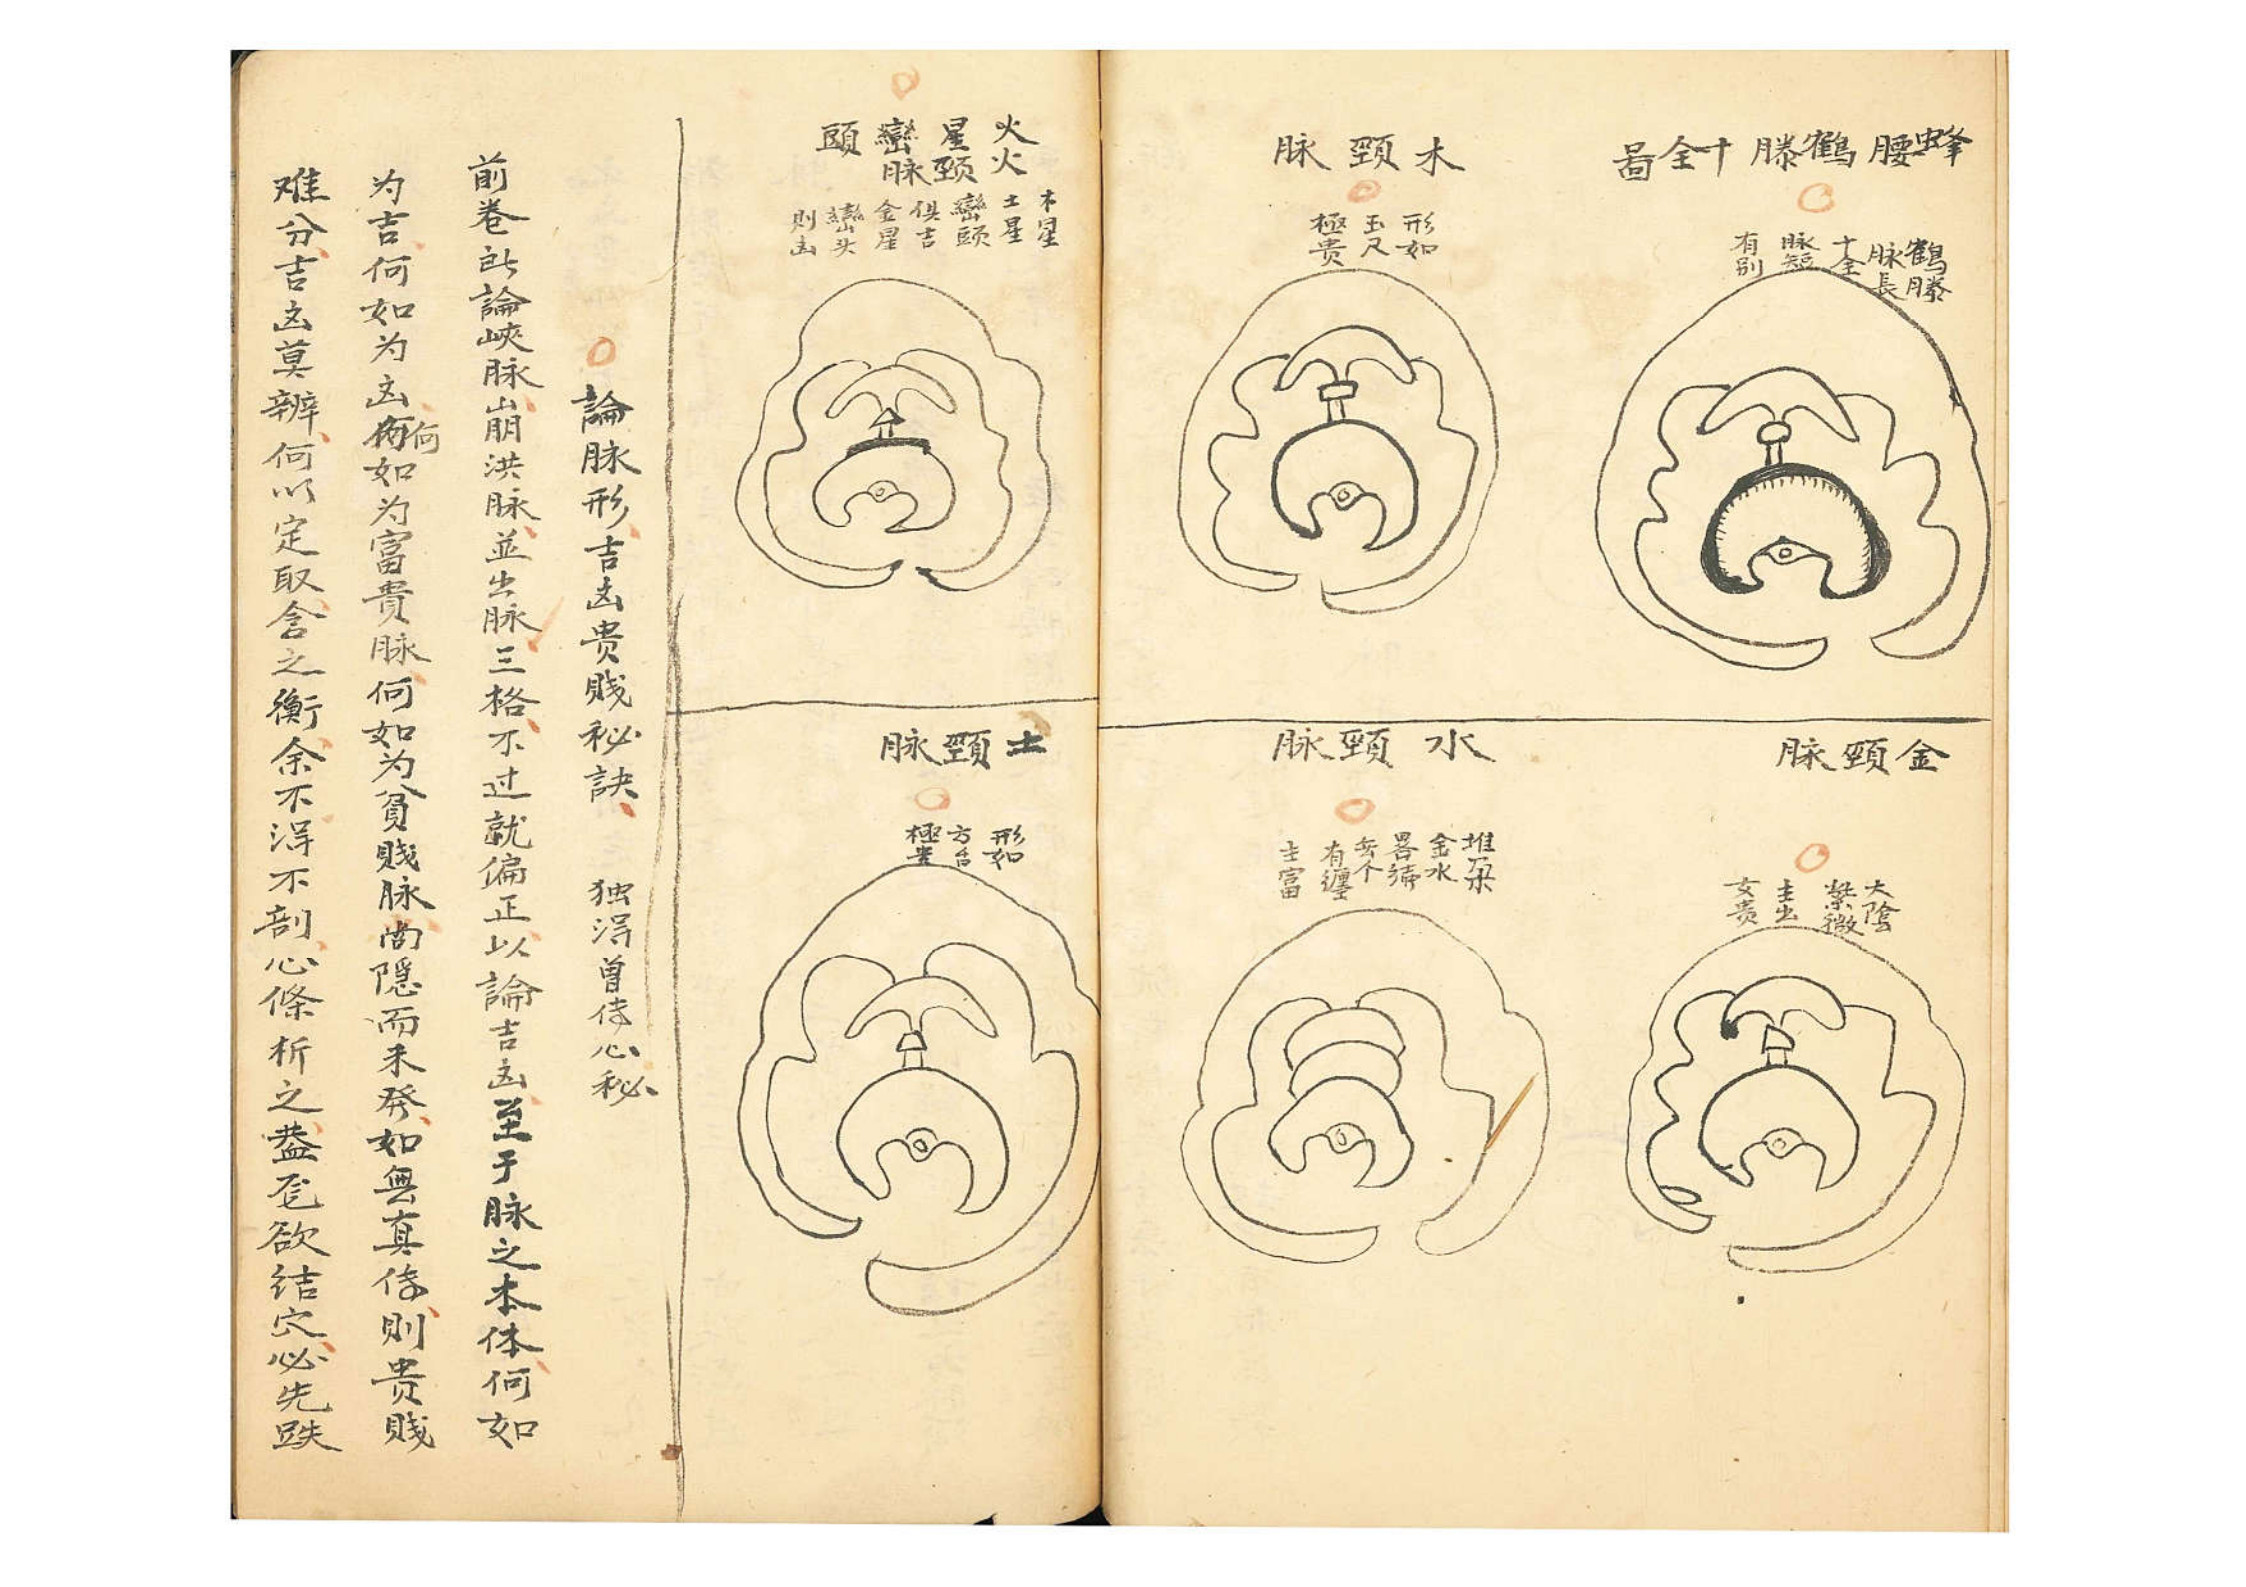 蜂腰鶴膝十全啚
鶴膝
脉長
十全
脉短
有别
木頸脉
形如
玉尺
極贵
金頸脉
太陰
紫微
主出
女贵
水頸脉
堆朶
金水
有纏
主富
火星巒頭
火頸脉
木星
土星
巒頭
俱吉
金星
巒头
則凶
土頸脉
形如
極贵
論脉形吉凶贵賤秘訣 独淂曽傳心秘
前卷所論峽脉崩洪脉並出脉三格不过就偏正以論吉凶至于脉之本体何如
为吉何如为凶何如为富貴脉何如为貧賤脉尚隱而未發如無真傳則贵賤
难分吉凶莫辨何以定取舍之衡余不淂不剖心條析之盖龙欲结穴必先跌